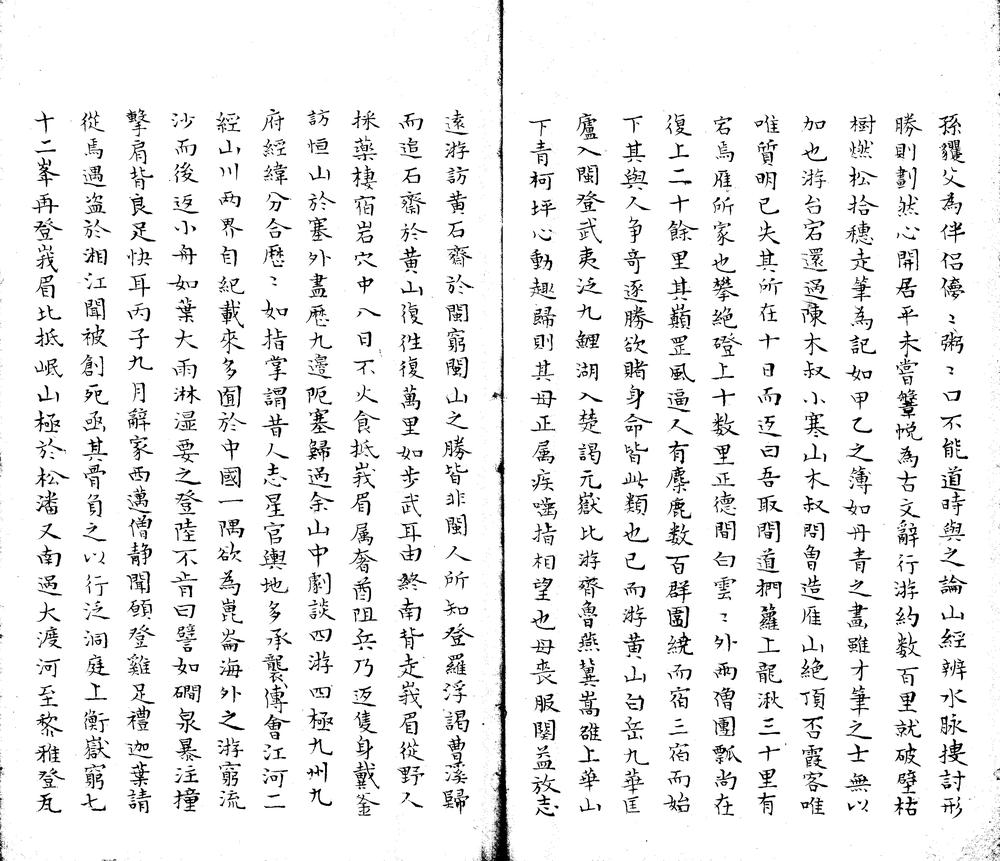 孫玃父為伴侶儚〻粥〻口不能道時與之論山經辨水脉捜討形
勝則劃然心開居平未嘗鞶帨為古文辭行游約数百里就破壁枯
樹燃松拾穗走筆為記如甲乙之簿如丹青之畫雖才筆之士無以
加也游台宕還過陳木叔小寒山木叔問曾造雁山絶頂否霞客唯
唯質明已失其所在十日而返曰吾取間道捫蘿上龍湫三十里有
宕焉雁所家也攀絶磴上十数里正德間白雲〻外兩僧團瓢尚在
復上二十餘里其巔罡風逼人有麋鹿数百群圍繞而宿三宿而始
下其與人争奇逐勝欲賭身命皆此類也已而游黄山白岳九華匡
廬入閩登武夷泛九鯉湖入楚謁元嶽北游齊魯燕冀嵩雒上華山
下青柯坪心動趣歸則其母正属疾嚙指相望也母喪服闋益放志
遠游訪黄石齋於閩窮閩山之勝皆非閩人所知登羅浮謁曹溪歸
而追石齋於黄山復徃復萬里如步武耳由終南背走峩眉從野人
採薬棲宿岩穴中八日不火食抵峩眉属奢酋阻兵乃返隻身戴釜
訪恒山於塞外盡歴九邉阨塞歸過余山中劇談四游四極九州九
府經緯分合歴〻如指掌謂昔人志星官輿地多承襲傅會江河二
經山川兩界自紀載來多囿於中國一隅欲為崑崙海外之游窮流
沙而後返小舟如葉大雨淋湿要之登陸不肯曰譬如磵泉暴注撞
擊肩背良足快耳丙子九月辭家西邁僧静聞願登雞足禮迦葉請
從焉遇盗於湘江聞被創死函其骨負之以行泛洞庭上衡嶽窮七
十二峯再登峩眉北抵岷山極於松潘又南過大渡河至黎雅登瓦